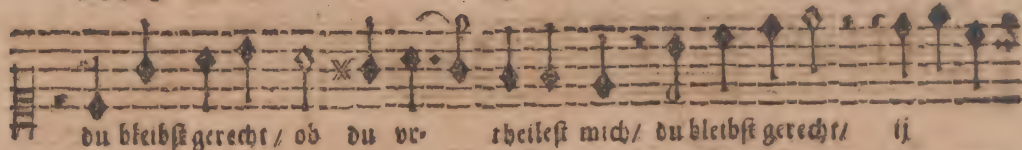 du bleibst gerecht / ob du vr- theilest mich / du bleibst gerecht / ij